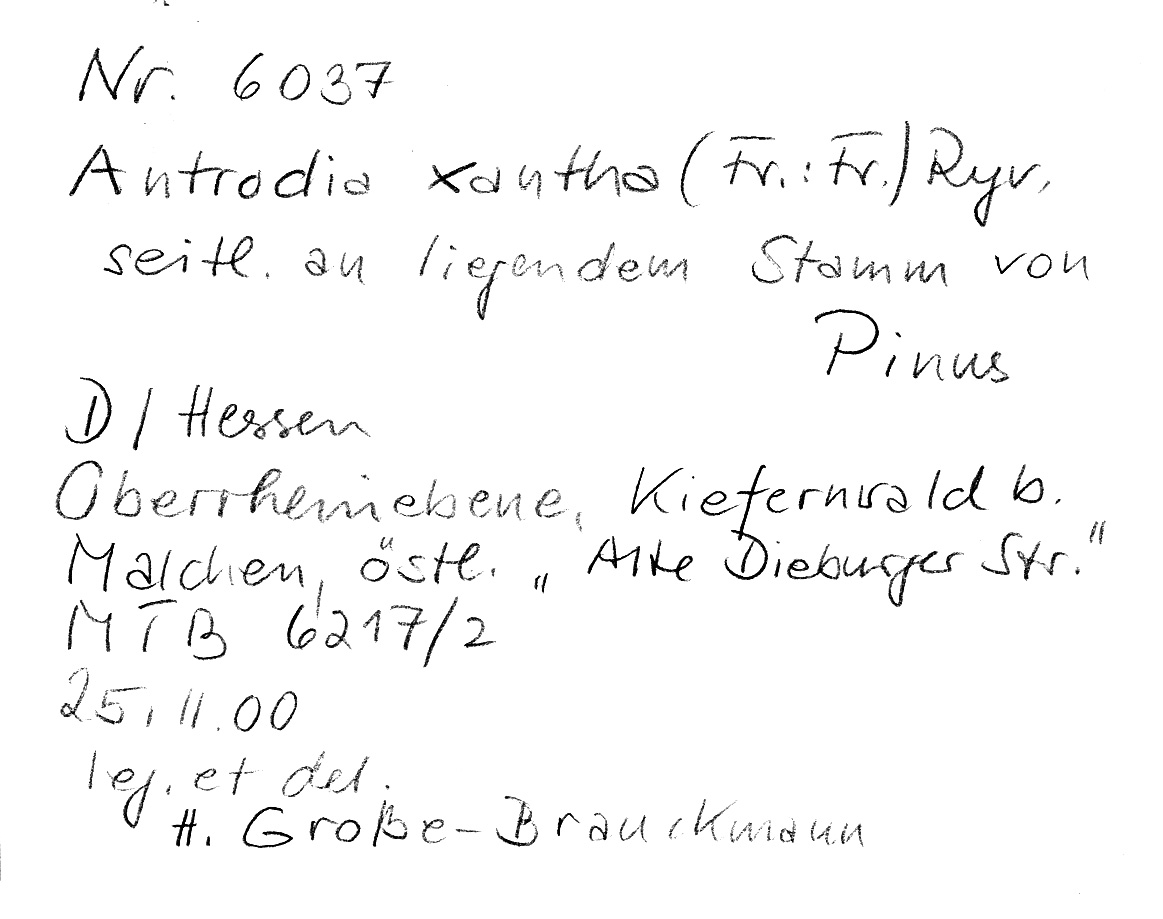 Nr. 6037
Antrodia xantha (Fr.: Fr.) Ryv.
seitl. an liegendem Stamm von
Pinus
D / Hessen
Oberrheinebene, Kiefernwald b.
Malchen, östl. „Alte Dieburger Str."
MTB 6217/2
25.11.00
leg. et det.
H. Große-Brauckmann